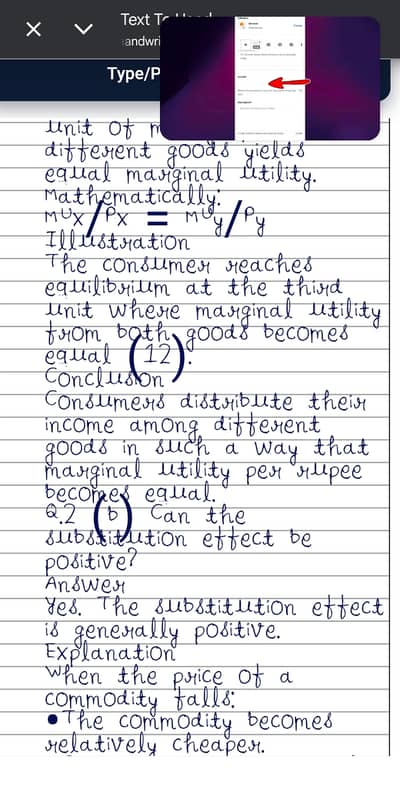 Text To
andwri
Type/P
unit of
different goods yields
equal marginal utility.
Mathematically:
MUx/Px = MUy/Py
Illustration
The consumer reaches
equilibrium at the third
unit where marginal utility
from both goods becomes
equal (12).
Conclusion
Consumers distribute their
income among different
goods in such a way that
marginal utility per rupee
becomes equal.
Q.2 (b) Can the
substitution effect be
positive?
Answer
Yes. The substitution effect
is generally positive.
Explanation
When the price of a
commodity falls:
•The commodity becomes
relatively cheaper.